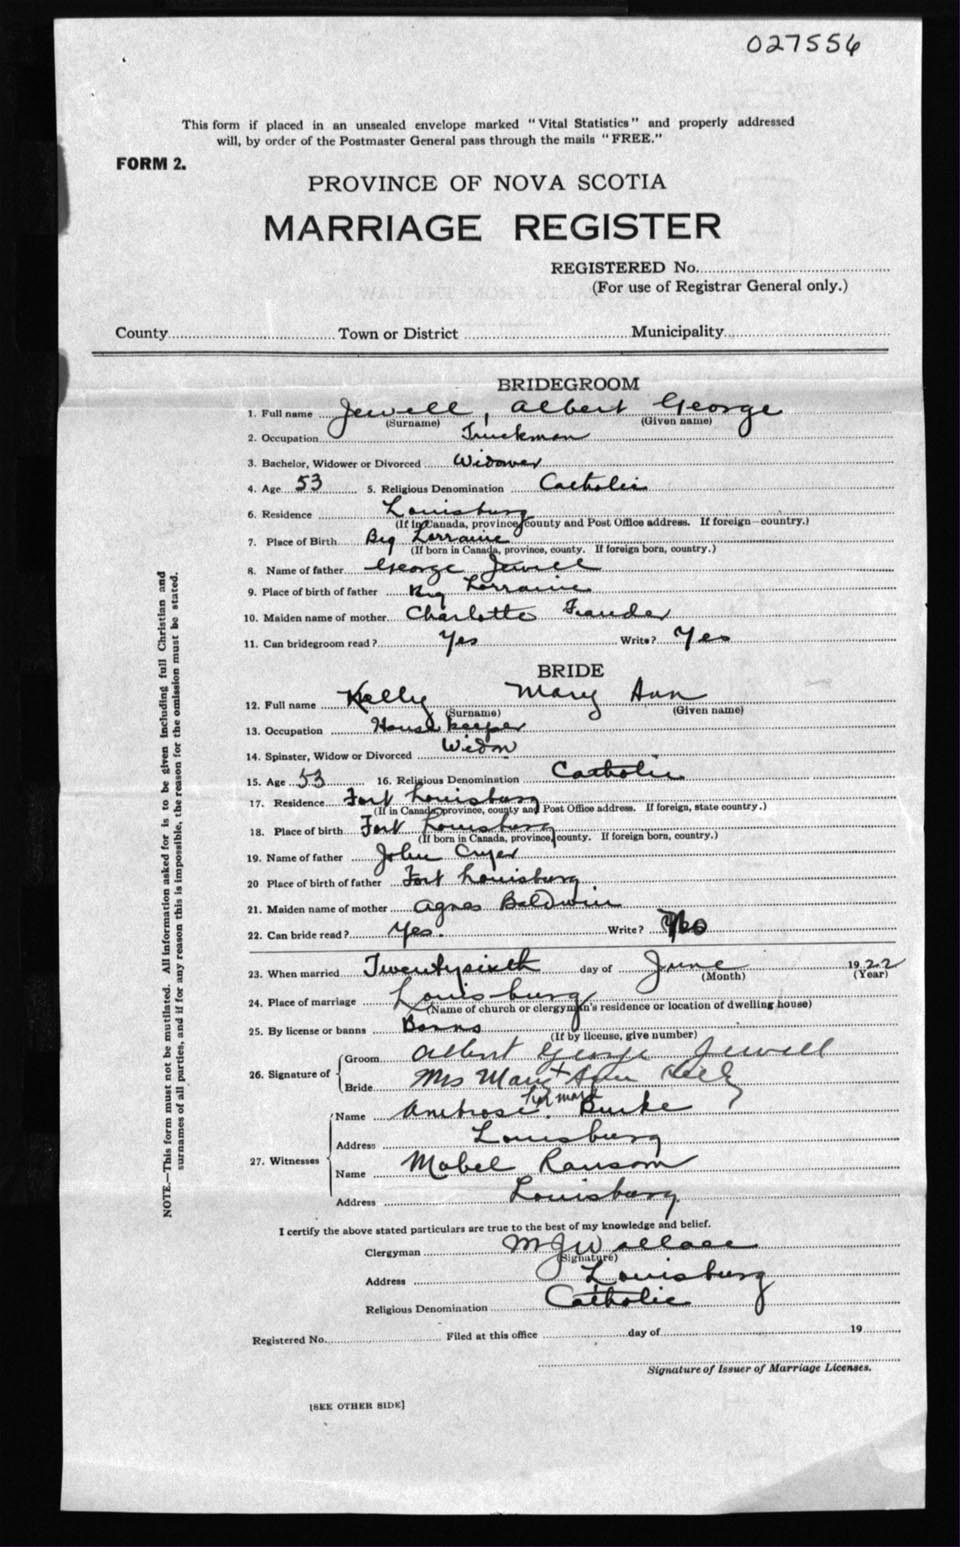 027556
This form if placed in an unsealed envelope marked "Vital Statistics" and properly addressed
will, by order of the Postmaster General pass through the mails "FREE."
FORM 2.
PROVINCE OF NOVA SCOTIA
MARRIAGE REGISTER
REGISTERED No.
(For use of Registrar General only.)
County Town or District Municipality
BRIDEGROOM
1. Full name Jewell, Albert George
(Surname) (Given name)
2. Occupation Truckman
3. Bachelor, Widower or Divorced Widower
4. Age 53 5. Religious Denomination Catholic
6. Residence Louisburg
(If in Canada, province, county and Post Office address. If foreign—country.)
7. Place of Birth Big Lorraine
(If born in Canada, province, county. If foreign born, country.)
8. Name of father George Jewell
9. Place of birth of father Big Lorraine
10. Maiden name of mother Charlotte
11. Can bridegroom read? Yes Write? Yes
BRIDE
12. Full name Kelly Mary Ann
(Surname) (Given name)
13. Occupation Housekeeper
14. Spinster, Widow or Divorced Widow
15. Age 53 16. Religious Denomination Catholic
17. Residence Fort Louisburg
(If in Canada, province, county and Post Office address. If foreign, state country.)
18. Place of birth Fort Louisburg
(If born in Canada, province, county. If foreign born, country.)
19. Name of father John Cryer
20 Place of birth of father Fort Louisburg
21. Maiden name of mother Agnes Baldwin
22. Can bride read? Yes. Write? No
23. When married Twentysixth day of June 1922
(Month) (Year)
24. Place of marriage Louisburg
(Name of church or clergyman's residence or location of dwelling house)
25. By license or banns Banns
(If by license, give number)
26. Signature of Groom Albert George Jewell
Bride Mrs Mary + Ann Kelly
her mark
27. Witnesses Name Ambrose Burke
Address Louisburg
Name Mabel Ransom
Address Louisburg
I certify the above stated particulars are true to the best of my knowledge and belief.
Clergyman M J Wallace
(Signature)
Address Louisburg
Religious Denomination Catholic
Registered No. Filed at this office day of 19
Signature of Issuer of Marriage Licenses.
[SEE OTHER SIDE]
NOTE.—This form must not be mutilated. All information asked for is to be given including full Christian and
surnames of all parties, and if for any reason this is impossible, the reason for the omission must be stated.